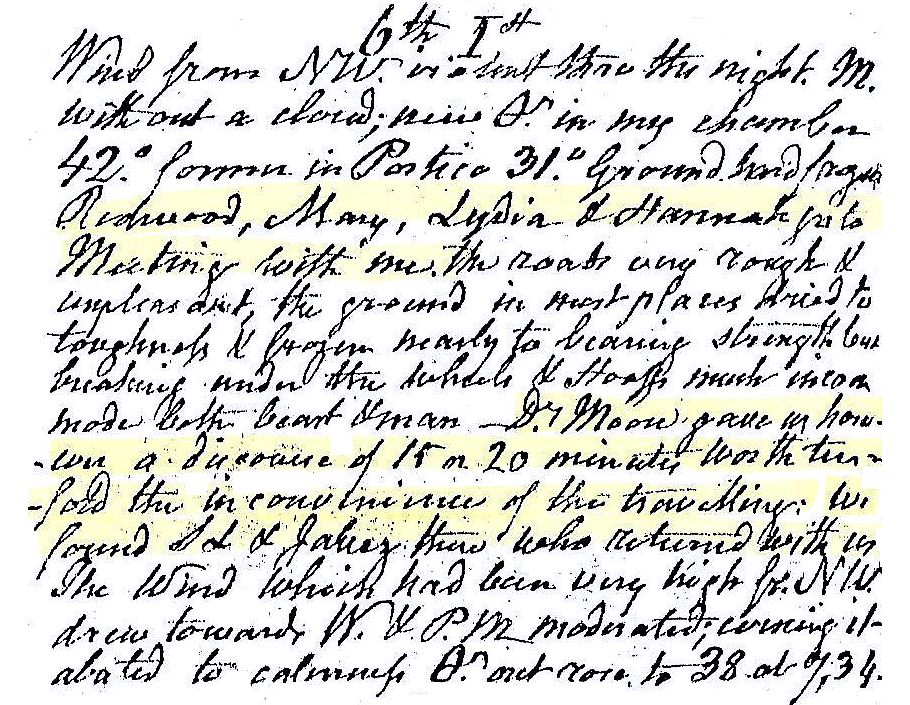 6th 1st
Wind from NW. violent thro the night. M.
without a cloud; new Θr in my chamber
42.° former in Portico 31.° Ground hard froze
Redwood, Mary, Lydia & Hannah go to
Meeting with me. the roads very rough &
unpleasant, the ground in most places dried to
toughness & frozen nearly to bearing strength but
breaking under the wheels & Hoofs much incom
mode both beast & man – Dr. Moore gave us how-
-ever a discourse of 15 or 20 minutes worth ten-
-fold the inconvenience of the travelling: We
found S L & Jabez there who returned with us
The Wind which had been very high fr. NW.
drew towards W. & P.M moderated; evening it
abated to calmness Θr out rose to 38 at 7,34.